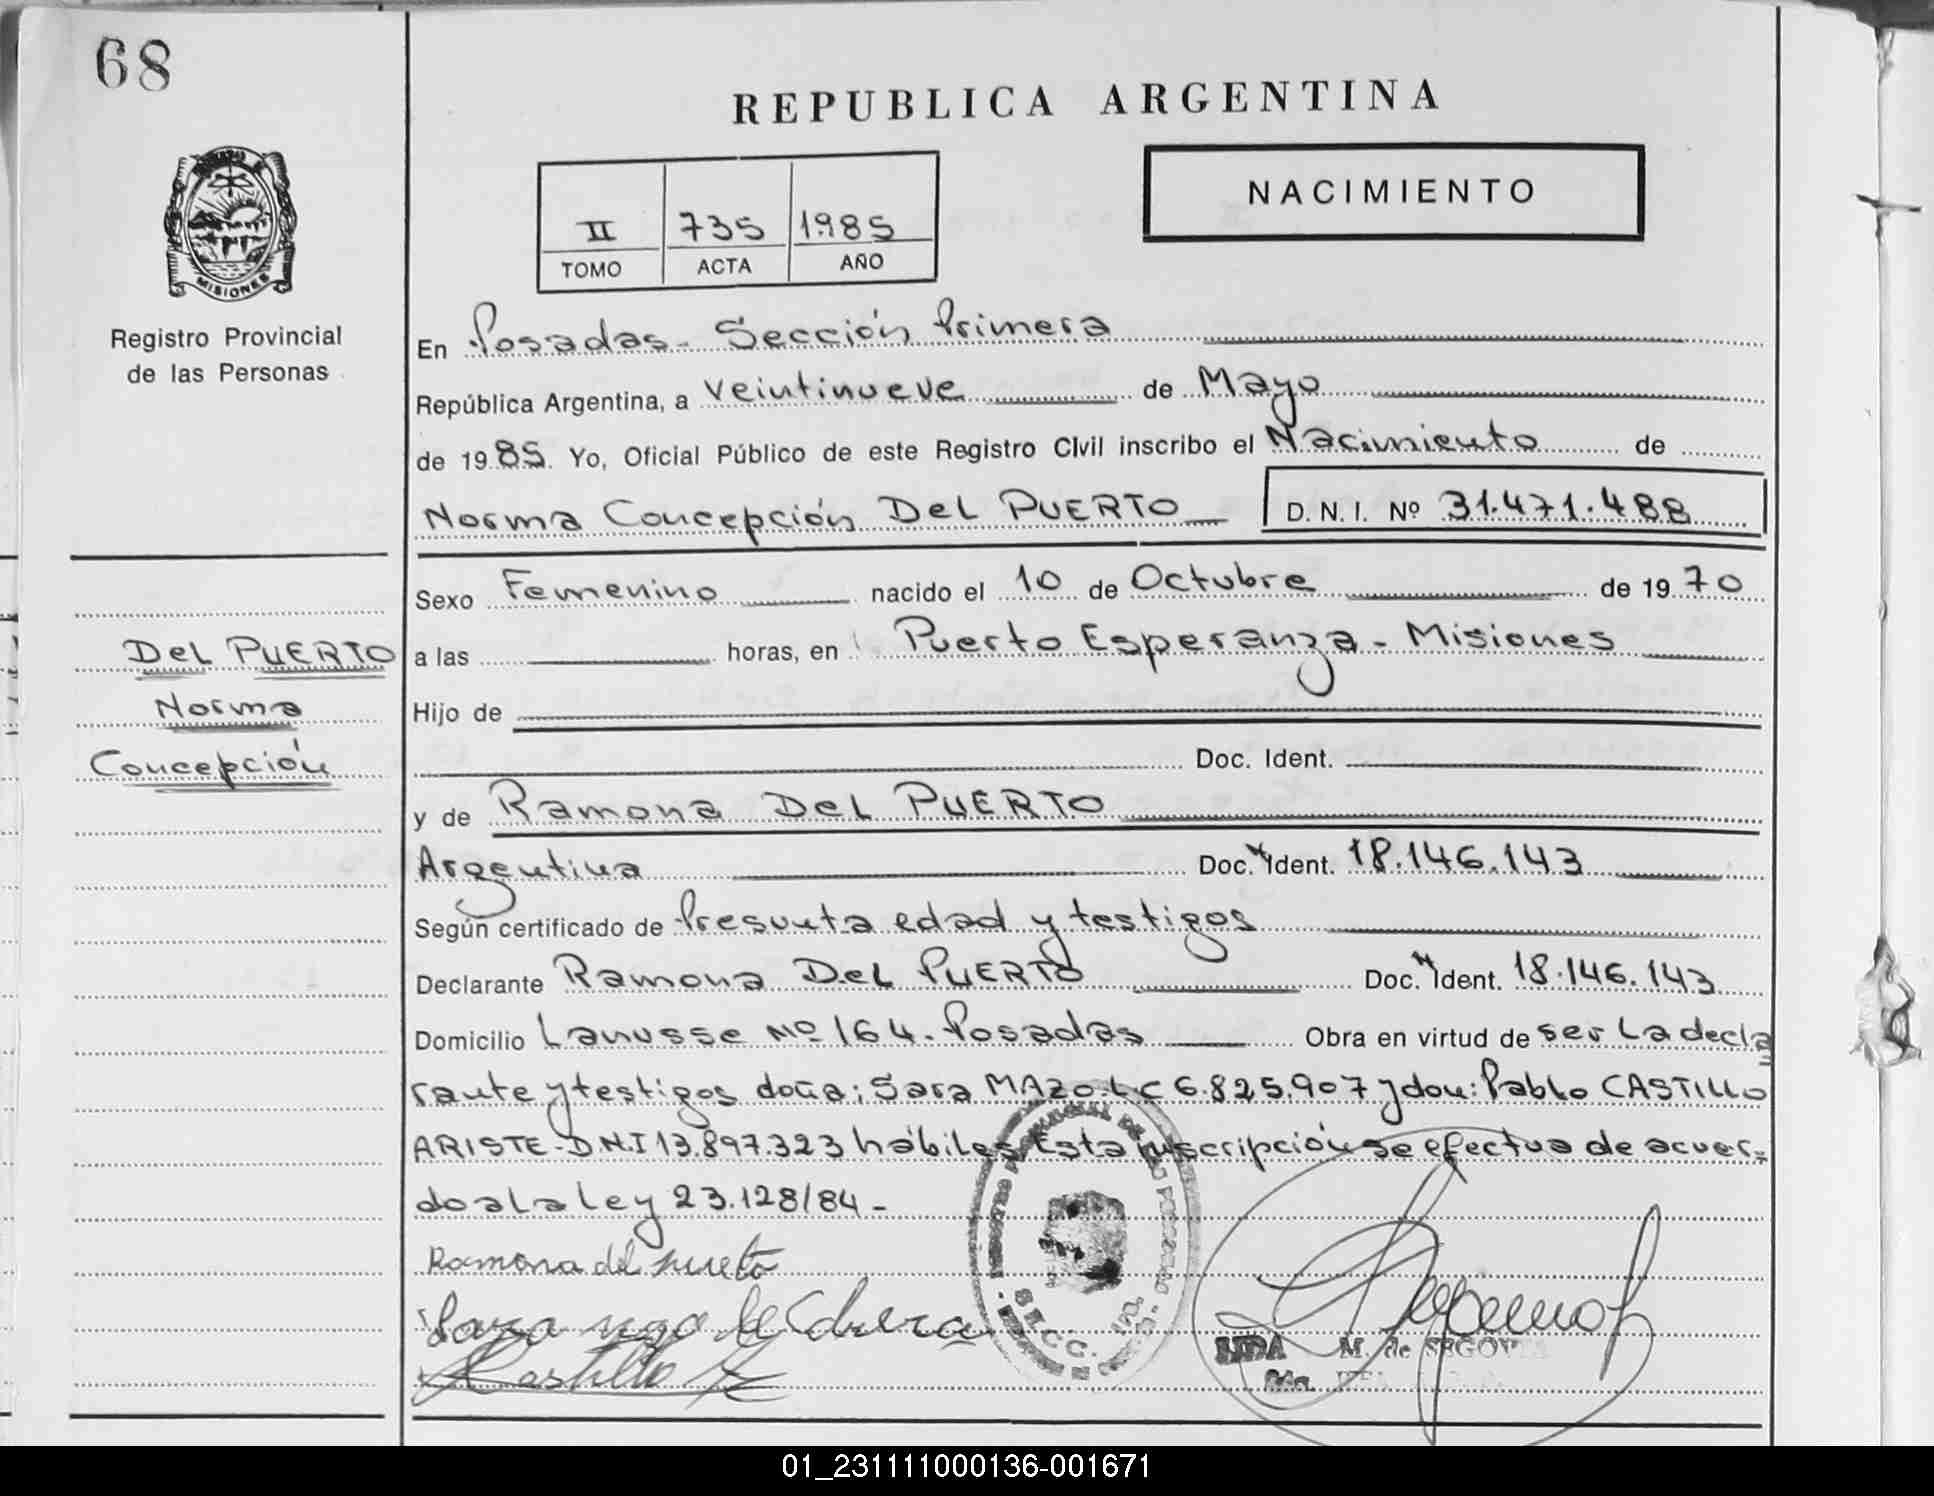 68
REPUBLICA ARGENTINA
NACIMIENTO
II 735 1985
TOMO ACTA AÑO
MISIONES
Registro Provincial
de las Personas
En Posadas - Sección Primera
República Argentina, a Veintinueve de Mayo
de 1985. Yo, Oficial Público de este Registro Civil inscribo el Nacimiento de
Norma Concepción Del PUERTO D. N. I. Nº 31.471.488
Sexo Femenino nacido el 10 de Octubre de 1970
Del PUERTO
Norma
Concepción
a las horas, en Puerto Esperanza - Misiones
Hijo de
Doc. Ident.
y de Ramona Del PUERTO
Argentina Doc. Ident. 18.146.143
Según certificado de Presunta edad y testigos
Declarante Ramona Del PUERTO Doc. Ident. 18.146.143
Domicilio Lanusse Nº 164 - Posadas Obra en virtud de ser la decla
rante y testigos doña: Sara MAZO LC 6.825.907 y don: Pablo CASTILLO
ARISTE - D.N.I 13.897.323 hábiles. Esta inscripción se efectua de acuer-
do a la ley 23.128/84 -
Ramona del puerto
Sara de
Castillo
SECC.
LIDA M. de SEGOVIA
01_231111000136-001671